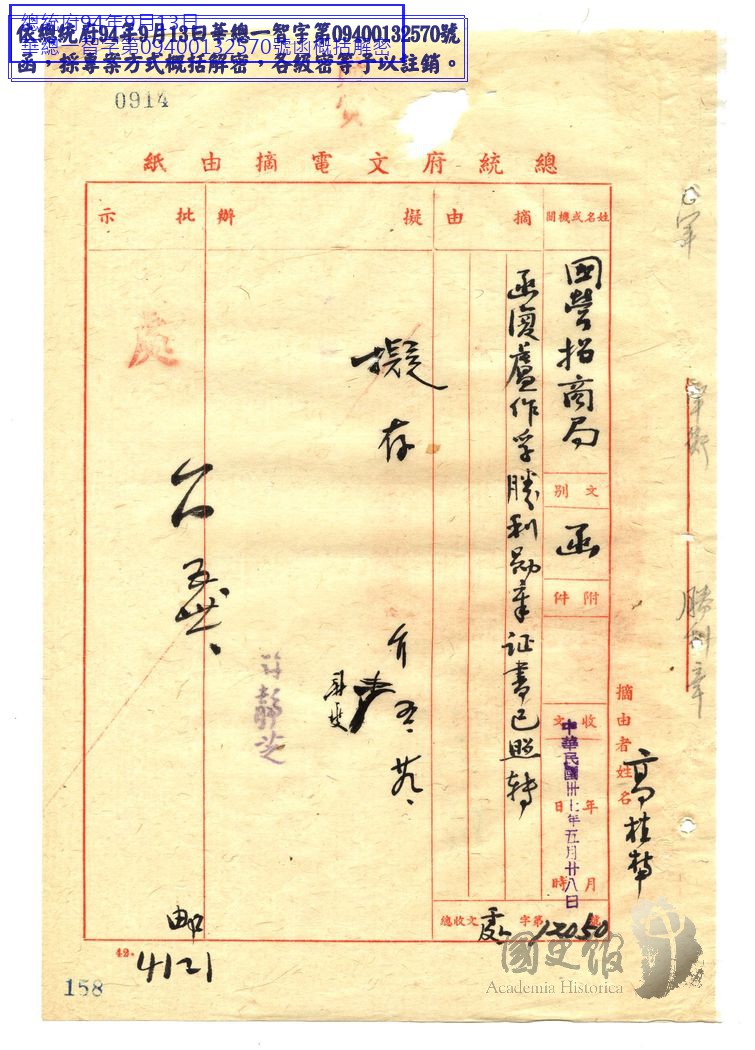 總統府94年9月13月
華總一智字第09400132570號函概括解密
依總統府94年9月13日華總一智字第09400132570號
函，採專案方式概括解密，各級密等予以註銷。
0914
總統府文電摘由紙
姓名或機關
摘由
擬辦
批示
國營招商局
文別
函
附件
收文
年月日時
中華民國卅七年五月廿八日
總收文
字第
號
12050
函復盧作孚勝利勛章証書已照轉
擬存
五、廿八、
處
許靜芝
摘由者姓名
勝利章
42.
4121
158
國史館
Academia Historica